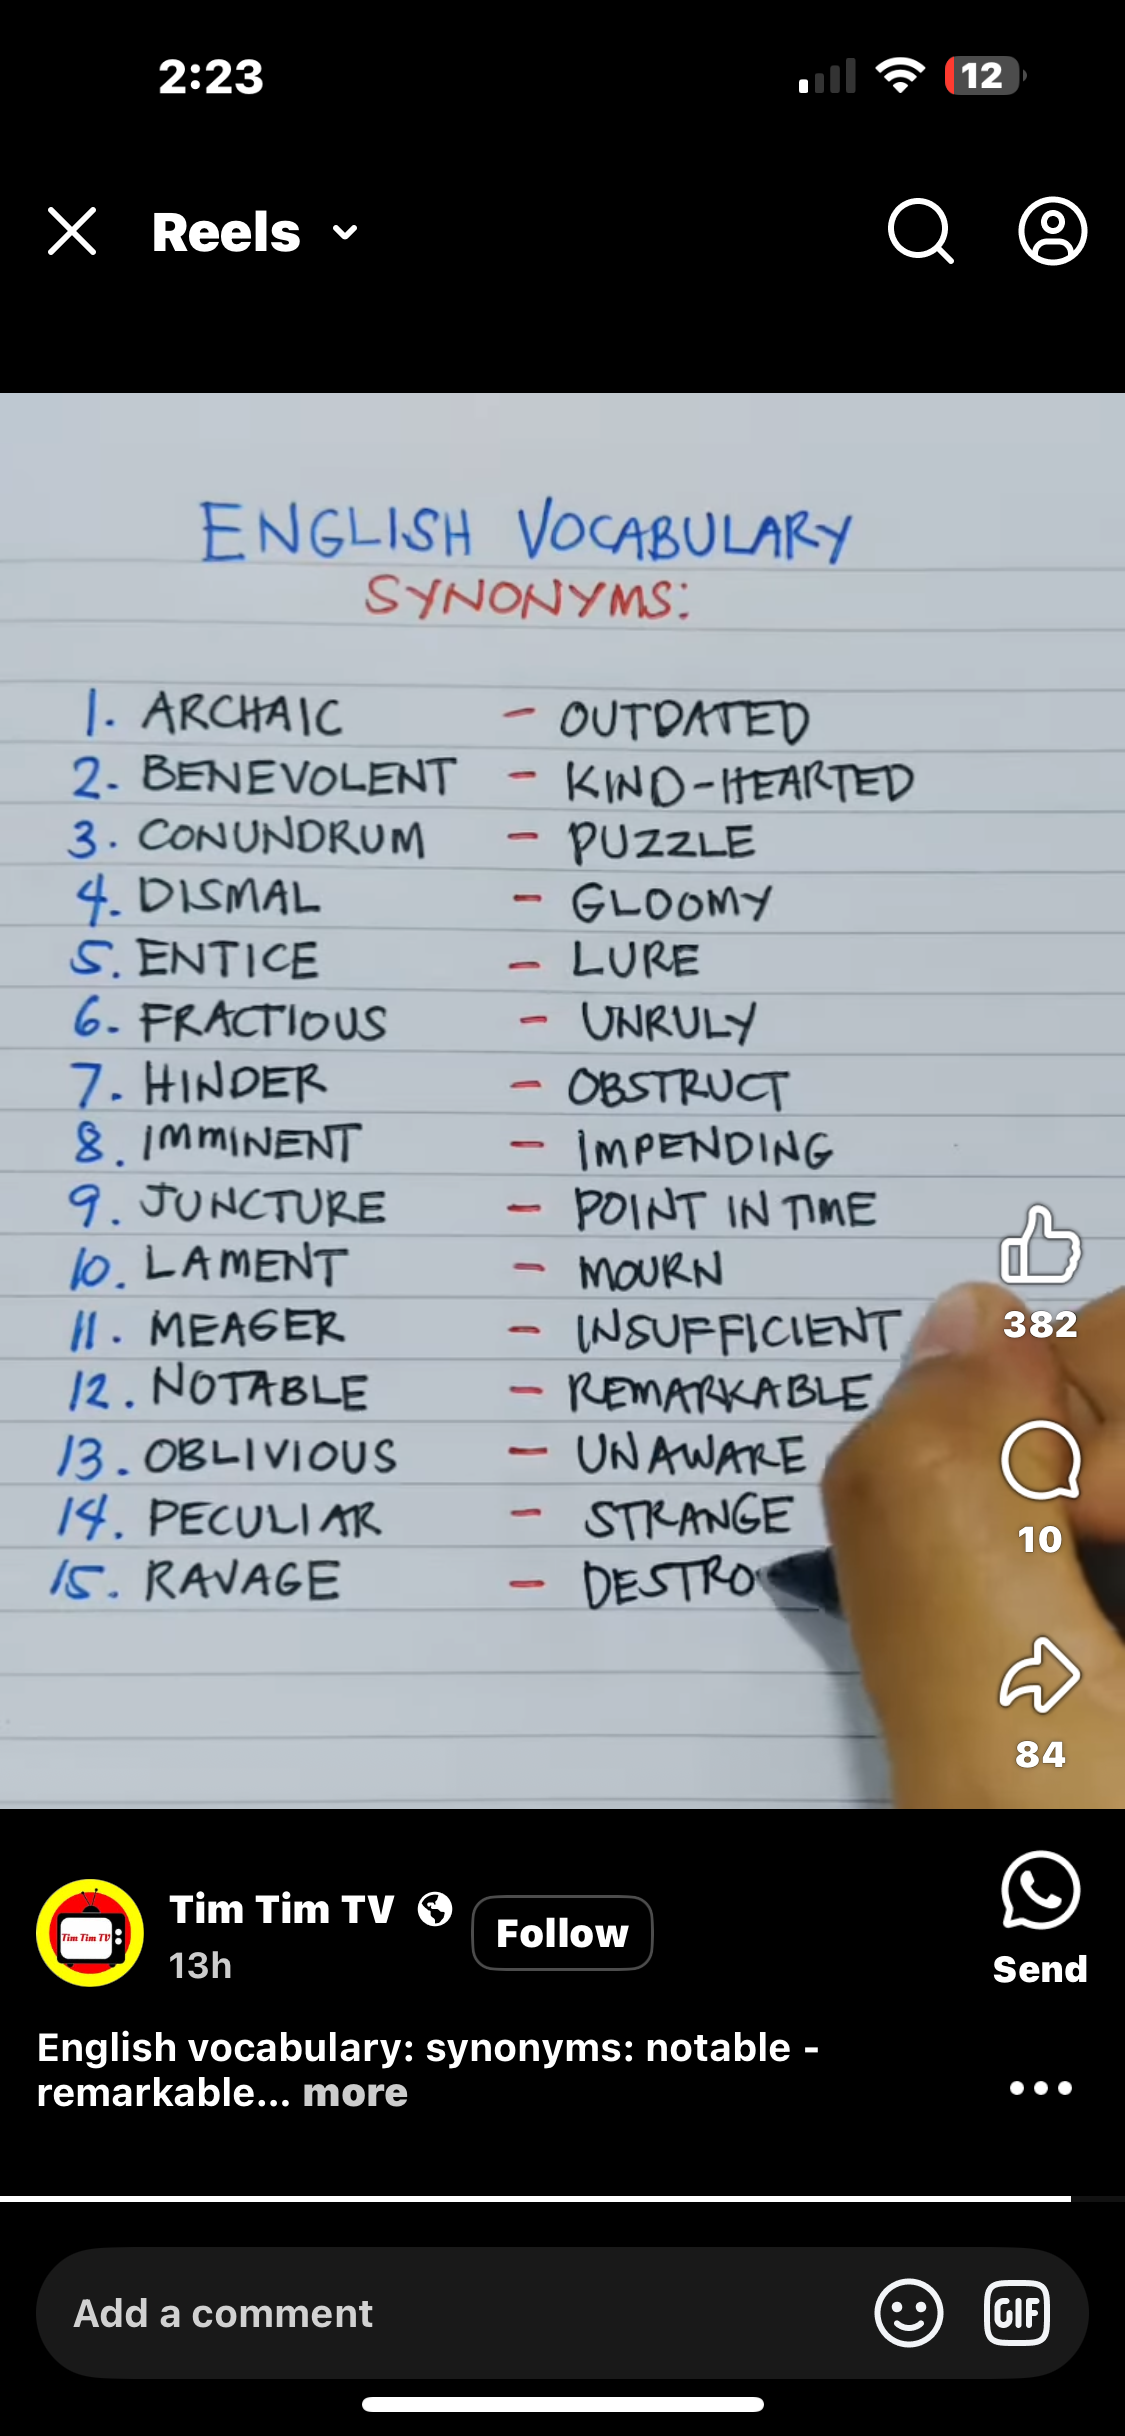 2:23
12
Reels
ENGLISH VOCABULARY
SYNONYMS:
1. ARCHAIC - OUTDATED
2. BENEVOLENT - KIND-HEARTED
3. CONUNDRUM - PUZZLE
4. DISMAL - GLOOMY
5. ENTICE - LURE
6. FRACTIOUS - UNRULY
7. HINDER - OBSTRUCT
8. IMMINENT - IMPENDING
9. JUNCTURE - POINT IN TIME
10. LAMENT - MOURN
11. MEAGER - INSUFFICIENT
12. NOTABLE - REMARKABLE
13. OBLIVIOUS - UNAWARE
14. PECULIAR - STRANGE
15. RAVAGE - DESTRO
382
10
84
Tim Tim TV
Tim Tim TV
Follow
13h
Send
English vocabulary: synonyms: notable -
remarkable... more
Add a comment
GIF